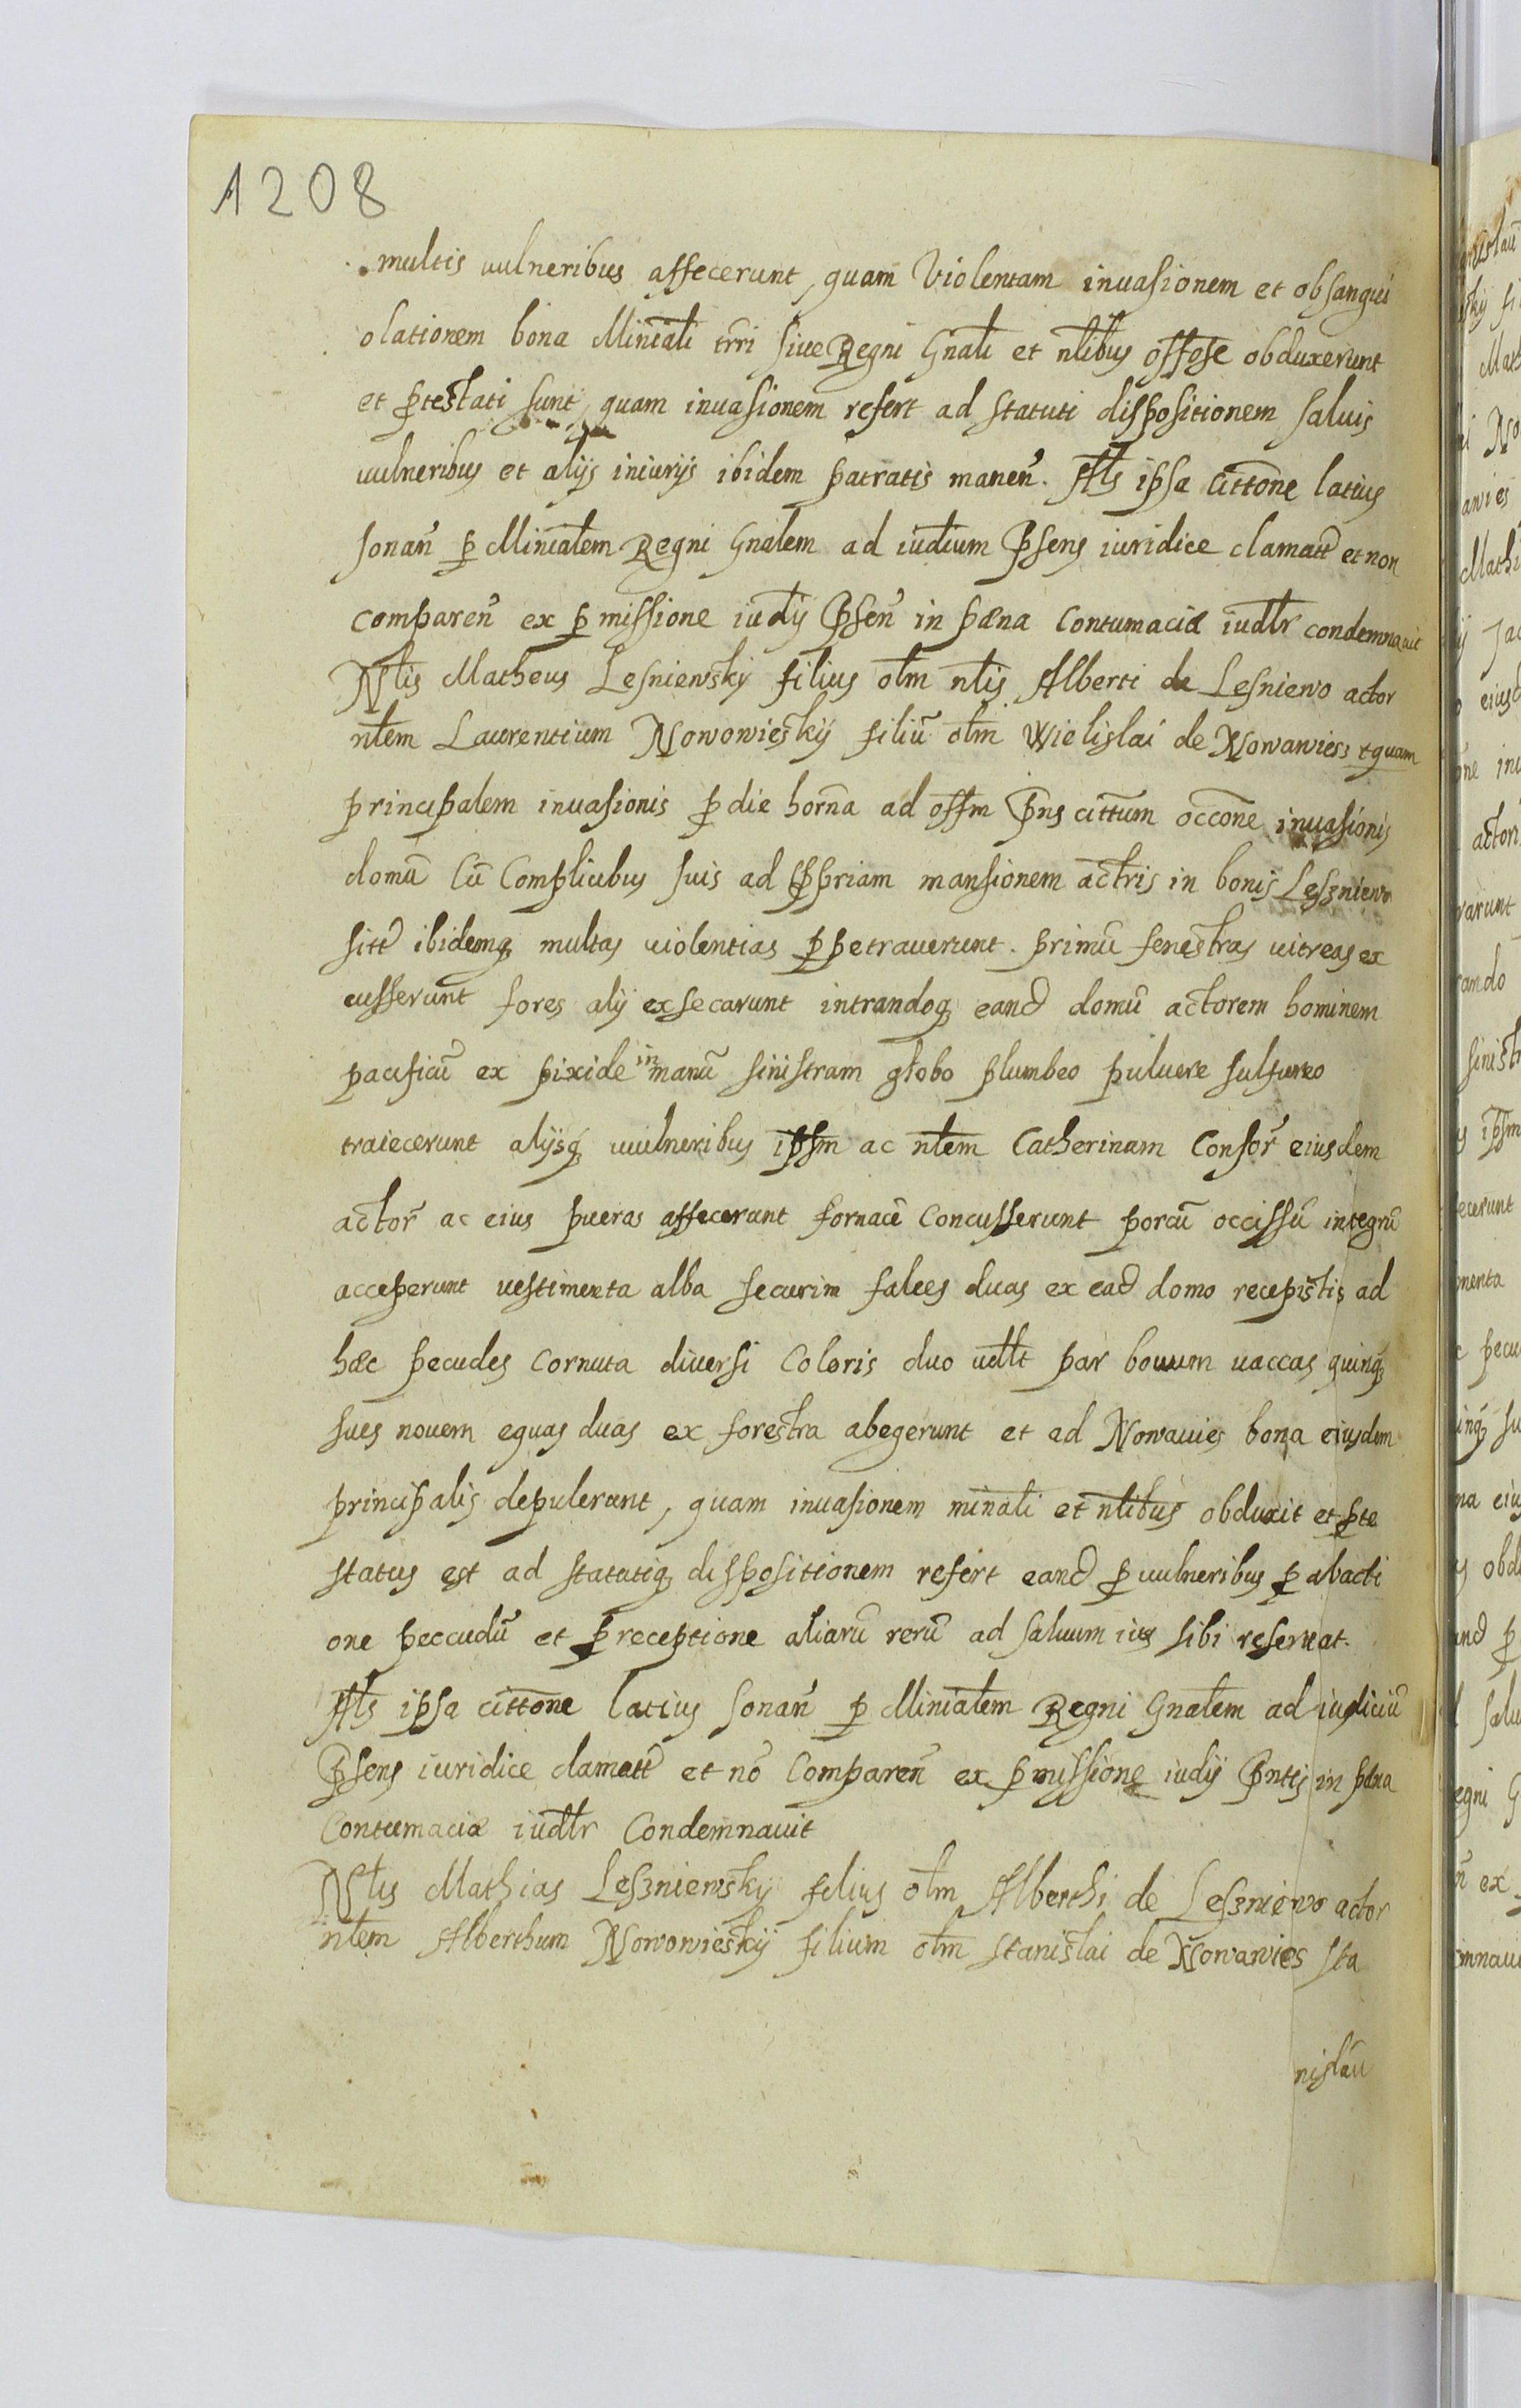 1208
multis uulneribus affecerunt, quam Violentam inuasionem et obsangui
olationem bona Miniali trri siue Regni Gnali et nlibus offese obduxerunt
et ꝓtestati sunt, quam inuasionem refert ad statuti dispositionem saluis
uulneribus et alijs iniurijs ibidem patratis maneñ. Als ipsa Cittone latius
sonañ ꝑ Minialem Regni Gnalem ad iudium Psens iuridice clamatt et non
compareñ ex ꝑmissione iudij Pseñ in pæna Contumaciæ iudlr condemnauit
Nlis Matheus Lesniewskij filius olm nlis Alberti de Lesniewo actor
nlem Laurentium Nowowieskij filiū olm Wielislai de Nowawies tquam
principalem inuasionis ꝓ die horna ad offm Pns cittum occone inuasionis
domū Cū Complicibus suis ad ꝓpriam mansionem actris in bonis Leszniewo
sitt ibidemq; multas uiolentias ꝑpetrauerunt. primū fenestras uitreas ex
cusserunt fores alij exsecarunt intrandoq; eand domū actorem hominem
pacificū ex pixide in manū sinistram globo plumbeo puluere sulfureo
traiecerunt alijsq; uulneribus ipsm ac nlem Catherinam Consor eiusdem
actor ac eius pueras affecerunt fornacē Concusserunt porcū occissū integrū
acceperunt uestimenta alba securim falces duas ex ead domo recepistis ad
hæc pecudes Cornuta diuersi Coloris duo udlt par bouum uaccas quinq;
sues nouem equas duas ex forestra abegerunt et ad Nowauies bona eiusdem
principalis depulerunt, quam inuasionem minali et nlibus obduxit et ꝓte
status est ad statutiq; dispositionem refert eand ꝓ uulneribus ꝓ abacti
one peccudū et ꝓ receptione aliarū rerū ad saluum ius sibi reseruat.
Als ipsa cittone latius sonañ ꝑ Minialem Regni Gnalem ad iudiciū
Psens iuridice clamatt et nō Compareñ ex ꝑmissione iudij Pntis in pæna
Contumaciæ iudlr Condemnauit
Nlis Mathias Leszniewskij filius olm Alberthi de Leszniewo actor
nlem Alberthum Nowowieskij filium olm Stanislai de Nowawies Sta
nislaū